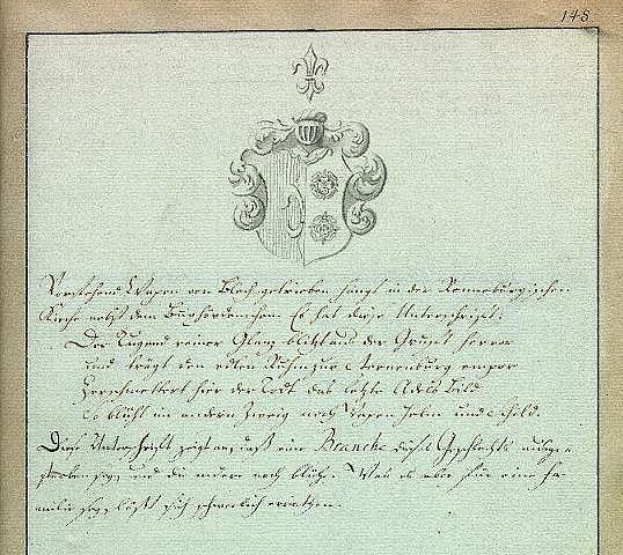 148
Vorstehend Wapen von Blech getrieben hangt in der Ronneburgischen
Kirche nebst dem Es hat diese Unterschrift:
Der Tugend reiner Glanz blitzt aus der Gruft hervor
und trägt den edlen Ruhm zur Sternenburg empor
Zerschmettert hier der Todt das letzte Adels Bild
So blüht im andern Zweig noch Wapen Helm und Schild.
Diese Unterschrift zeigt an, daß eine Branche dieses Geschlechts ausge=
storben sey, und die andere noch blühe. Was es aber für eine Fa=
milie sey, läßt sich schwerlich errathen.